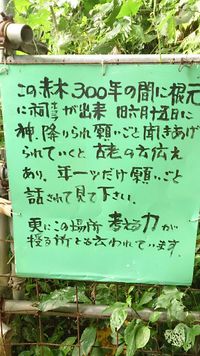 この赤木300年の間に根元
に祠ホコラが出来 旧六月十五日に
神、降りられ願いごと聞きあげ
られていくと 古老の方伝え
あり、年一つだけ願いごと
話されて見て下さい。
更にこの場所 考える力が
授る所とも言われています。